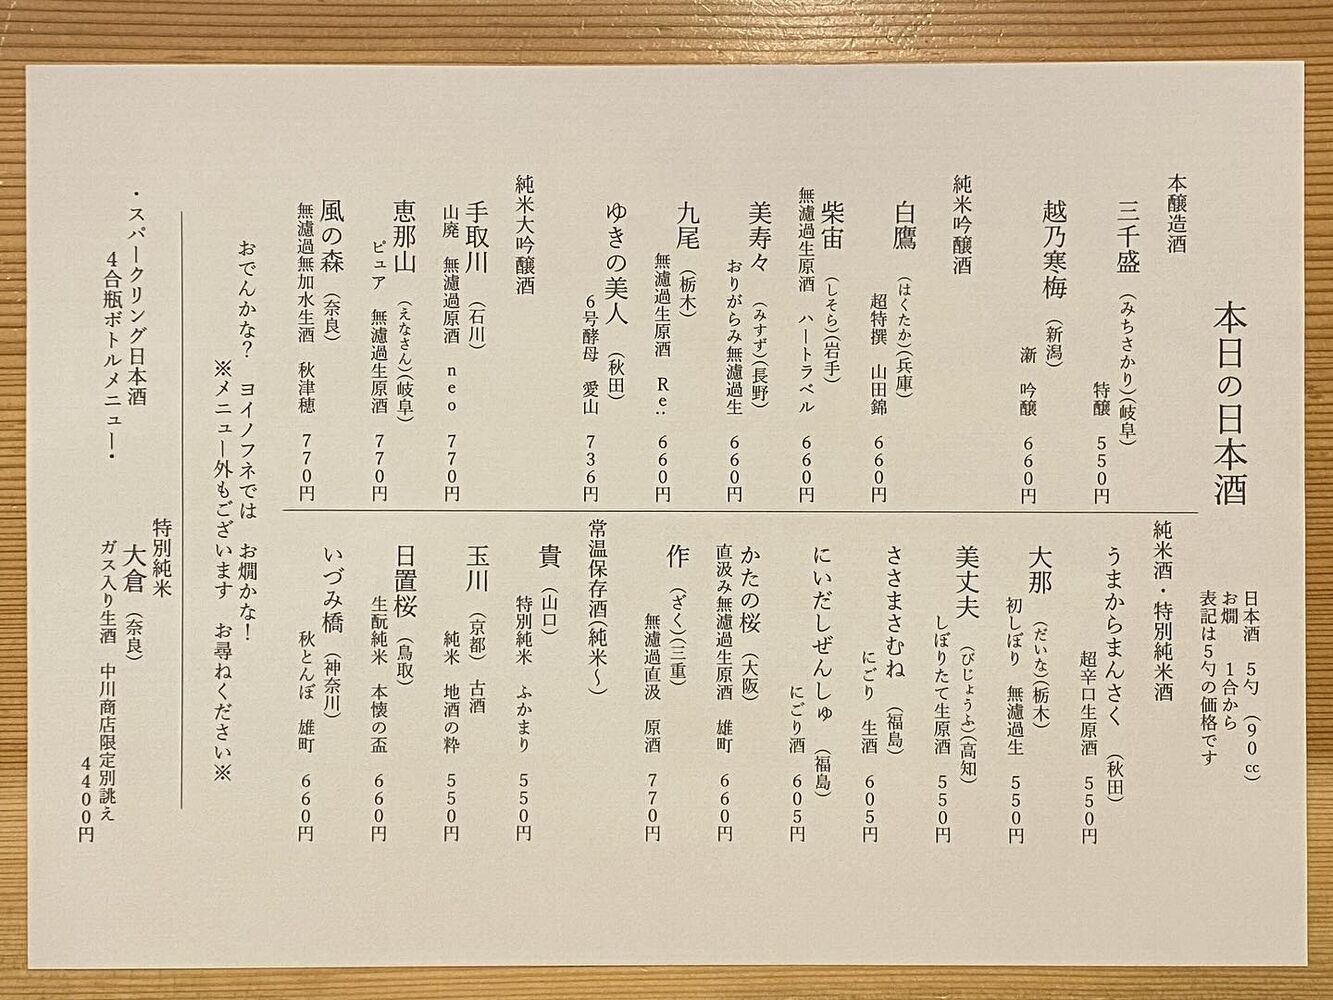 本日の日本酒
日本酒 5勺 (90cc)
お燗 1合から
表記は5勺の価格です
本醸造酒
三千盛 (みちさかり)(岐阜)
特醸 550円
越乃寒梅 (新潟)
漸 吟醸 660円
純米吟醸酒
白鷹 (はくたか)(兵庫)
超特撰 山田錦 660円
柴宙 (しそら)(岩手)
無濾過生原酒 ハートラベル 660円
美寿々 (みすず)(長野)
おりがらみ無濾過生 660円
九尾 (栃木)
無濾過生原酒 Re: 660円
ゆきの美人 (秋田)
6号酵母 愛山 736円
純米大吟醸酒
手取川 (石川)
山廃 無濾過原酒 neo 770円
恵那山 (えなさん)(岐阜)
ピュア 無濾過生原酒 770円
風の森 (奈良)
無濾過無加水生酒 秋津穂 770円
純米酒・特別純米酒
うまからまんさく (秋田)
超辛口生原酒 550円
大那 (だいな)(栃木)
初しぼり 無濾過生 550円
美丈夫 (びじょうふ)(高知)
しぼりたて生原酒 550円
ささまさむね (福島)
にごり 生酒 605円
にいだしぜんしゅ (福島)
にごり酒 605円
かたの桜 (大阪)
直汲み無濾過生原酒 雄町 660円
作 (ざく)(三重)
無濾過直汲 原酒 770円
常温保存酒(純米〜)
貴 (山口)
特別純米 ふかまり 550円
玉川 (京都) 古酒
純米 地酒の粋 550円
日置桜 (鳥取)
生酛純米 本懐の盃 660円
いづみ橋 (神奈川)
秋とんぼ 雄町 660円
おでんかな? ヨイノフネでは お燗かな!
※メニュー外もございます お尋ねください※
・スパークリング日本酒
4合瓶ボトルメニュー・
特別純米
大倉 (奈良)
ガス入り生酒 中川商店限定別誂え
4400円